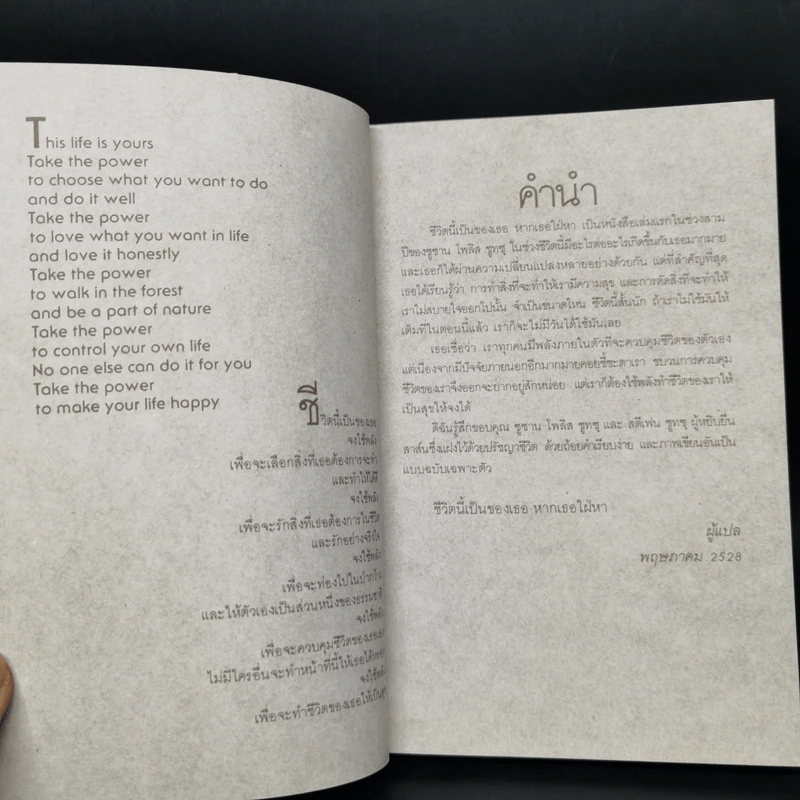 This life is yours
Take the power
to choose what you want to do
and do it well
Take the power
to love what you want in life
and love it honestly
Take the power
to walk in the forest
and be a part of nature
Take the power
to control your own life
No one else can do it for you
Take the power
to make your life happy
ชีวิตนี้เป็นของเธอ
จงใช้พลัง
เพื่อจะเลือกสิ่งที่เธอต้องการจะทำ
และทำให้ได้ดี
จงใช้พลัง
เพื่อจะรักสิ่งที่เธอต้องการในชีวิต
และรักอย่างจริงใจ
จงใช้พลัง
เพื่อจะท่องไปในป่ากว้าง
และให้ตัวเองเป็นส่วนหนึ่งของธรรมชาติ
จงใช้พลัง
เพื่อจะควบคุมชีวิตของเธอเอง
ไม่มีใครอื่นจะทำหน้าที่นี้ให้เธอได้
จงใช้พลัง
เพื่อจะทำชีวิตของเธอให้เป็นสุข
คำนำ
ชีวิตนี้เป็นของเธอ หากเธอใฝ่หา เป็นหนังสือเล่มแรกในช่วงสาม
ปีของซูซาน โพลิส ชูทซุ ในช่วงชีวิตนี้มีอะไรต่ออะไรเกิดขึ้นกับเธอมากมาย
และเธอก็ได้ผ่านความเปลี่ยนแปลงหลายอย่างด้วยกัน แต่ที่สำคัญที่สุด
เธอได้เรียนรู้ว่า การทำสิ่งที่จะทำให้เรามีความสุข และการตัดสิ่งที่จะทำให้
เราไม่สบายใจออกไปนั้น จำเป็นขนาดไหน ชีวิตนี้สั้นนัก ถ้าเราไม่ใช้มันให้
เต็มที่ในตอนนี้แล้ว เราก็จะไม่มีวันได้ใช้มันเลย
เธอเชื่อว่า เราทุกคนมีพลังภายในตัวที่จะควบคุมชีวิตของตัวเอง
แต่เนื่องจากมีปัจจัยภายนอกอีกมากมายคอยชี้ชะตาเรา ขบวนการควบคุม
ชีวิตของเราจึงออกจะยากอยู่สักหน่อย แต่เราก็ต้องใช้พลังทำชีวิตของเราให้
เป็นสุขให้จงได้
ดิฉันรู้สึกขอบคุณ ซูซาน โพลิส ชูทซุ และ สตีเฟน ชูทซุ ผู้หยิบยื่น
สาส์นซึ่งแฝงไว้ด้วยปรัชญาชีวิต ด้วยถ้อยคำเรียบง่าย และภาพเขียนอันเป็น
แบบฉบับเฉพาะตัว
ชีวิตนี้เป็นของเธอ-หากเธอใฝ่หา
ผู้แปล
พฤษภาคม 2528